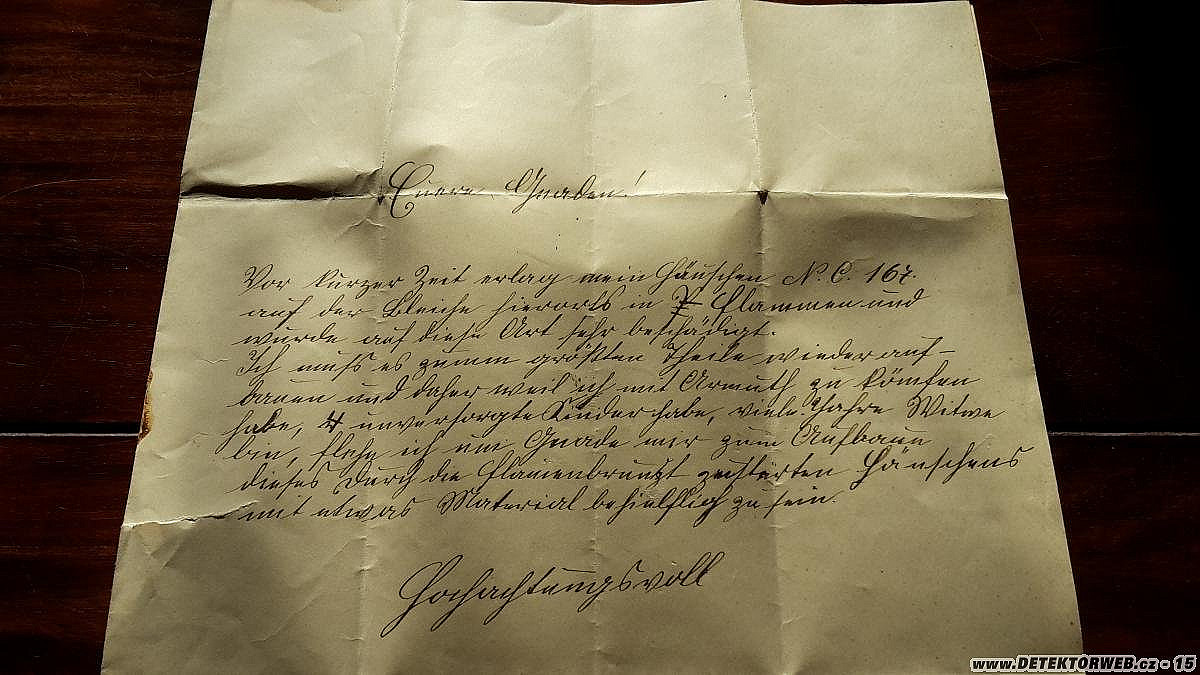 Euere Gnaden!
Vor kurzer Zeit erlag mein Häuschen N. C. 167.
auf der Bleiche hierorts in Flammen und
wurde auf diese Art sehr beschädigt.
Ich muß es zumm größten Theile wieder auf-
bauen und daher weil ich mit Armuth zu kömfen
habe, 4 unversorgte Kinder habe, viele Jahre Witwe
bin, flehe ich um Gnade mir zum Aufbaue
dieses durch die Flamenbrunst zerstörten Häuschens
mit etwas Material behielflig zu sein.
Hochachtungsvoll
www.DETEKTORWEB.cz - 15